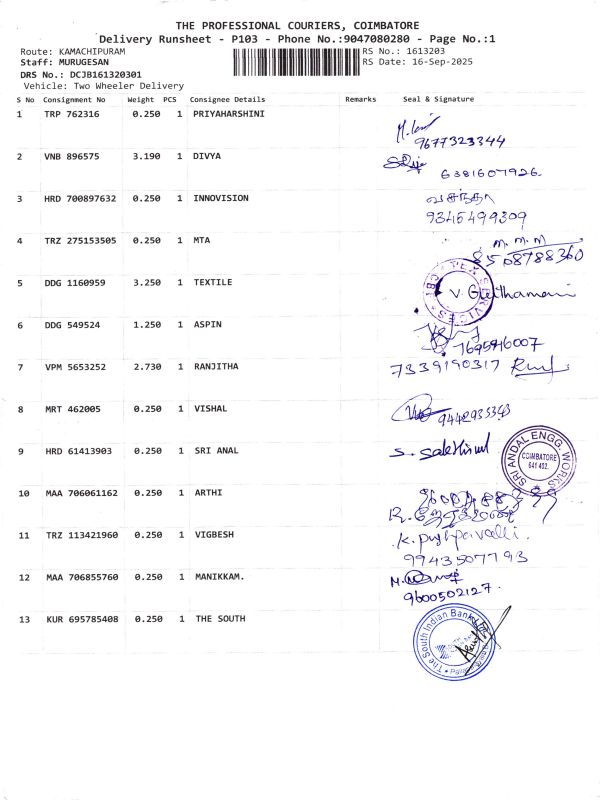 THE PROFESSIONAL COURIERS, COIMBATORE
Delivery Runsheet - P103 - Phone No.:9047080280 - Page No.:1
Route: KAMACHIPURAM RS No.: 1613203
Staff: MURUGESAN RS Date: 16-Sep-2025
DRS No.: DCJB161320301
Vehicle: Two Wheeler Delivery
S No Consignment No Weight PCS Consignee Details Remarks Seal & Signature
1 TRP 762316 0.250 1 PRIYAHARSHINI
9677323344
2 VNB 896575 3.190 1 DIVYA
6381607926.
3 HRD 700897632 0.250 1 INNOVISION வசந்தா
9345499309
4 TRZ 275153505 0.250 1 MTA M. M. M
8508788360
5 DDG 1160959 3.250 1 TEXTILE V. Geethamani
6 DDG 549524 1.250 1 ASPIN
7695916007
7 VPM 5653252 2.730 1 RANJITHA 7339190317
8 MRT 462005 0.250 1 VISHAL 9442935343
9 HRD 61413903 0.250 1 SRI ANAL S.
SRI ANDAL ENGG. WORKS
COIMBATORE
641 402.
10 MAA 706061162 0.250 1 ARTHI
11 TRZ 113421960 0.250 1 VIGBESH K. pushpavalli.
9943507793
12 MAA 706855760 0.250 1 MANIKKAM.
9600502127.
13 KUR 695785408 0.250 1 THE SOUTH
The South Indian Bank